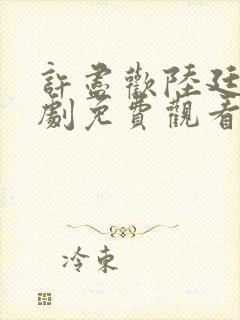 許盡歡陸廷
劇免費觀看
冷東